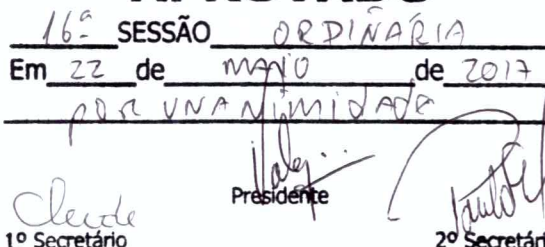 APROVADO
16ª SESSÃO ORDINÁRIA
Em 22 de MAIO de 2017
POR UNANIMIDADE
Presidente
Cleide
1º Secretário 2º Secretári